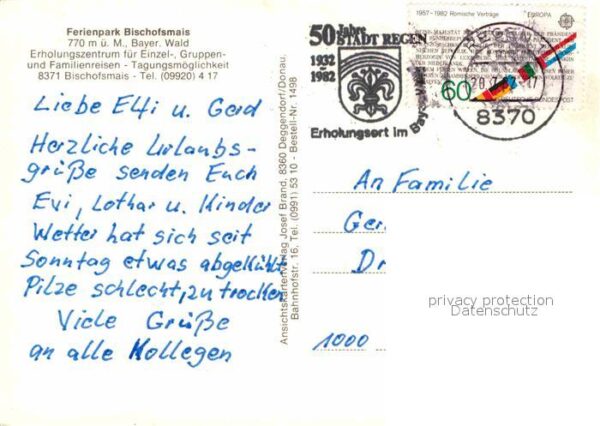 Ferienpark Bischofsmais
770 m ü. M., Bayer. Wald
Erholungszentrum für Einzel-, Gruppen-
und Familienreisen - Tagungsmöglichkeit
8371 Bischofsmais - Tel. (09920) 4 17
Liebe Elfi u. Gerd
Herzliche Urlaubs-
grüße senden Euch
Evi, Lothar u. Kinder
Wetter hat sich seit
Sonntag etwas abgekühlt
Pilze schlecht, zu trocken
Viele Grüße
an alle Kollegen
Ansichtskartenverlag Josef Brand, 8360 Deggendorf/Donau,
Bahnhofstr. 16, Tel. (0991) 53 10 - Bestell-Nr. 1498
50 Jahre
STADT REGEN
1932
1982
Erholungsort im Bayer. Wald
1957-1982 Römische Verträge
EUROPA
60
8370
An Familie
Ger
Dr
1000
privacy protection
Datenschutz